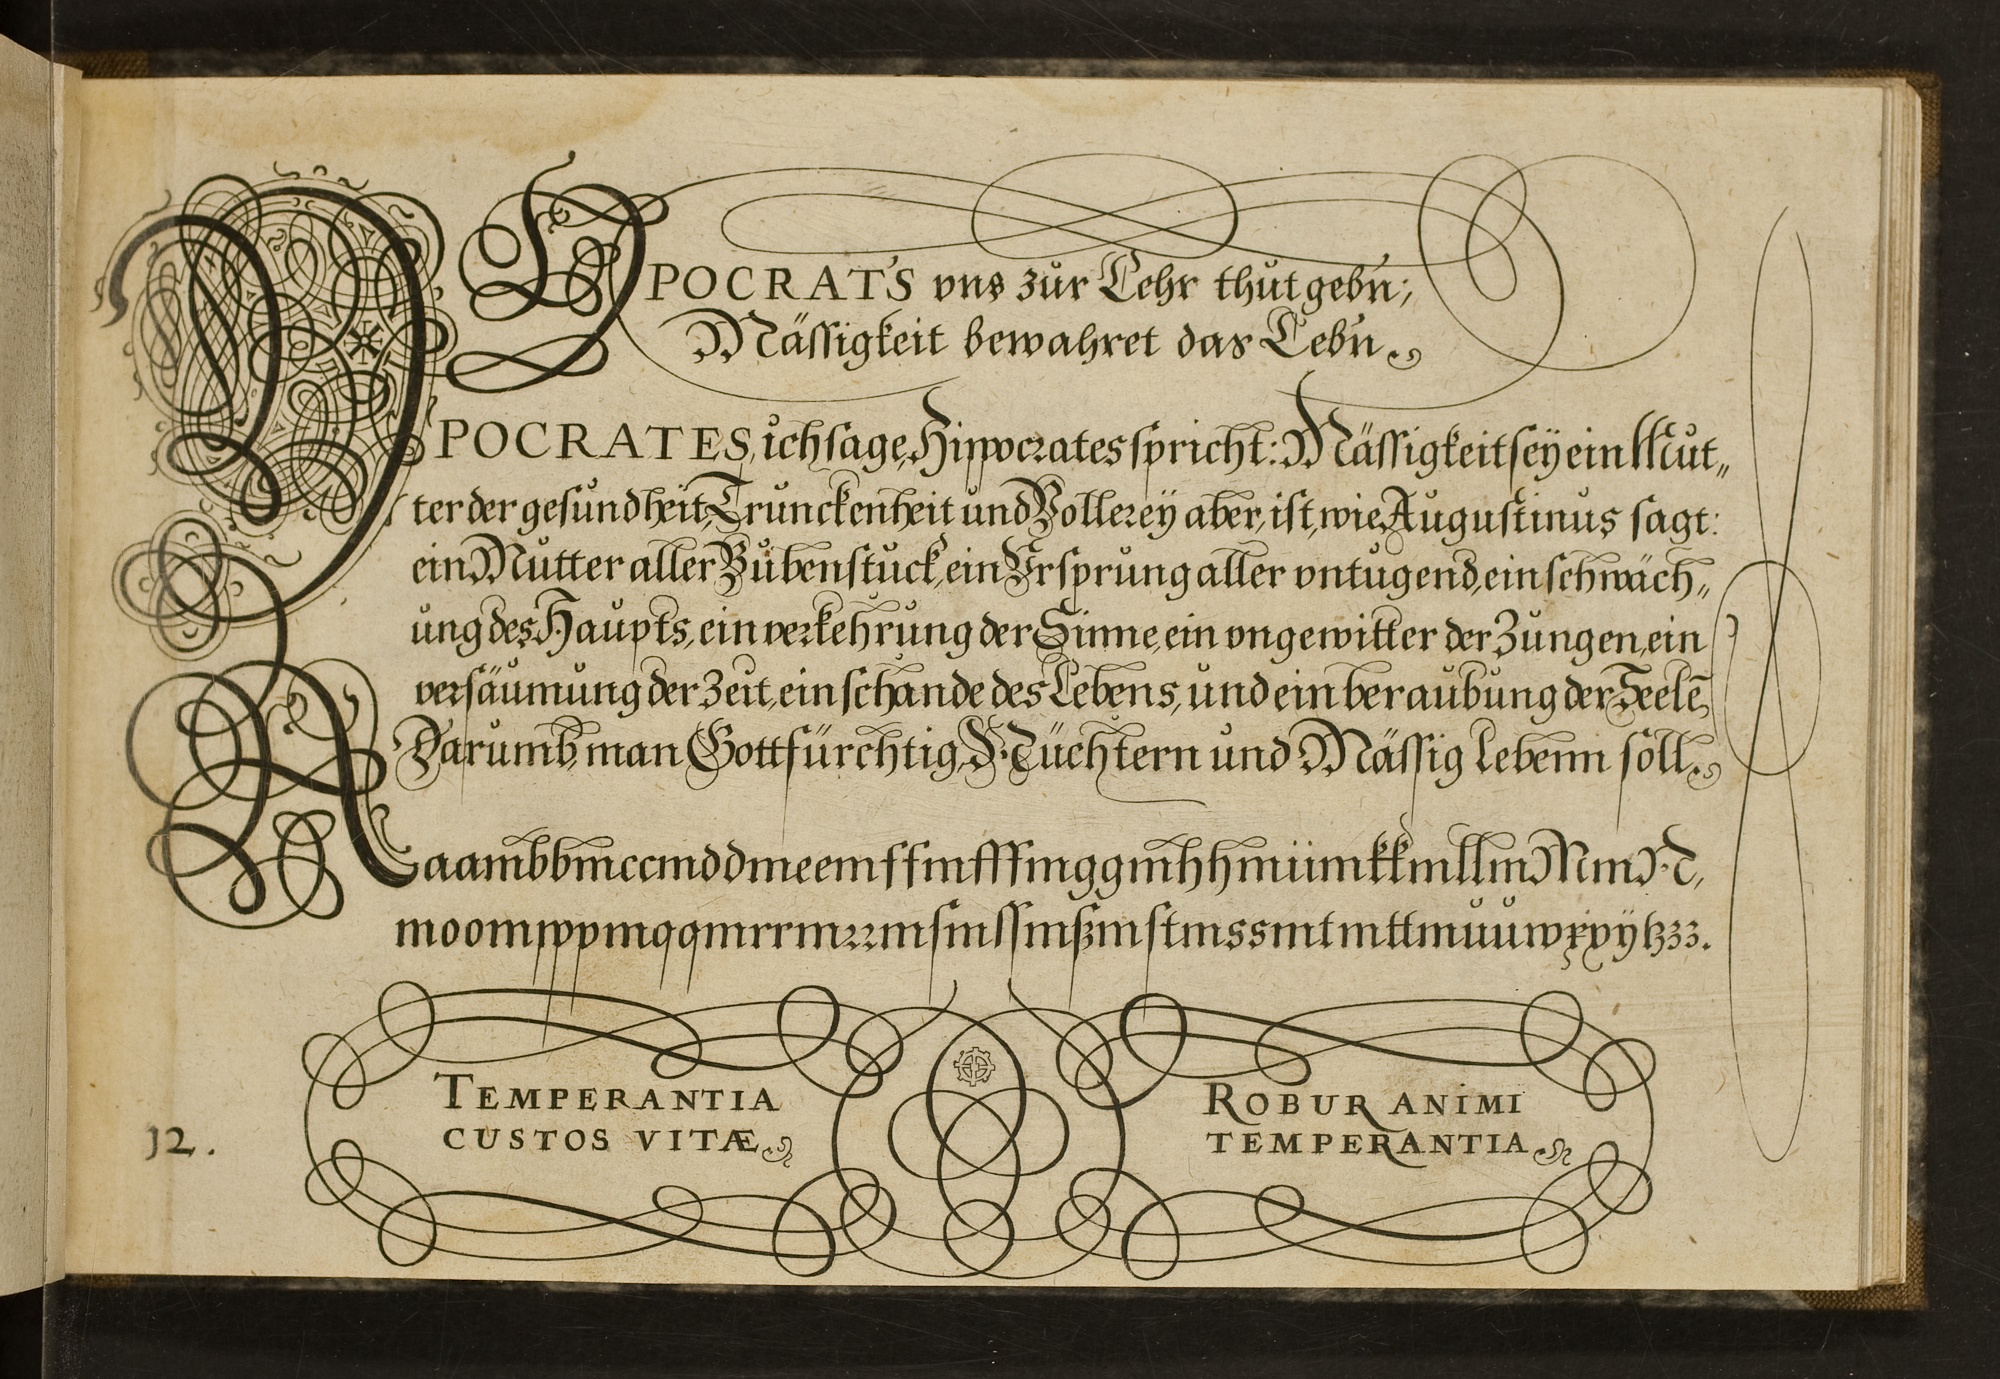 HYPOCRAT'S vns zur Lehr thut gebn;
Mässigkeit bewahret das Lebn
HYPOCRATES, ich sage, Hippocrates spricht: Mässigkeit seÿ ein Mut„
ter der gesundheit, Trunckenheit und Vollereÿ aber, ist, wie Augustinus sagt:
ein Mutter aller Bubenstuck, ein Ursprung aller vntugend, ein schwäch„
ung des Haupts, ein verkehrung der Sinne, ein vngewitter der Zungen, ein
versäumung der Zeit, ein schande des Lebens, und ein beraubung der Seelē,
Darumb, man Gottsfürchtig, Nüchtern und Mässig lebenn soll.
A aambbmccmddmeemffmfffmggmhhmiimkkmllmMmN,
moompppmqqmrrmrrmsmssmßmstmssmtmttmuuwxxyÿtzzz.
TEMPERANTIA
CUSTOS VITÆ
ROBUR ANIMI
TEMPERANTIA
12.